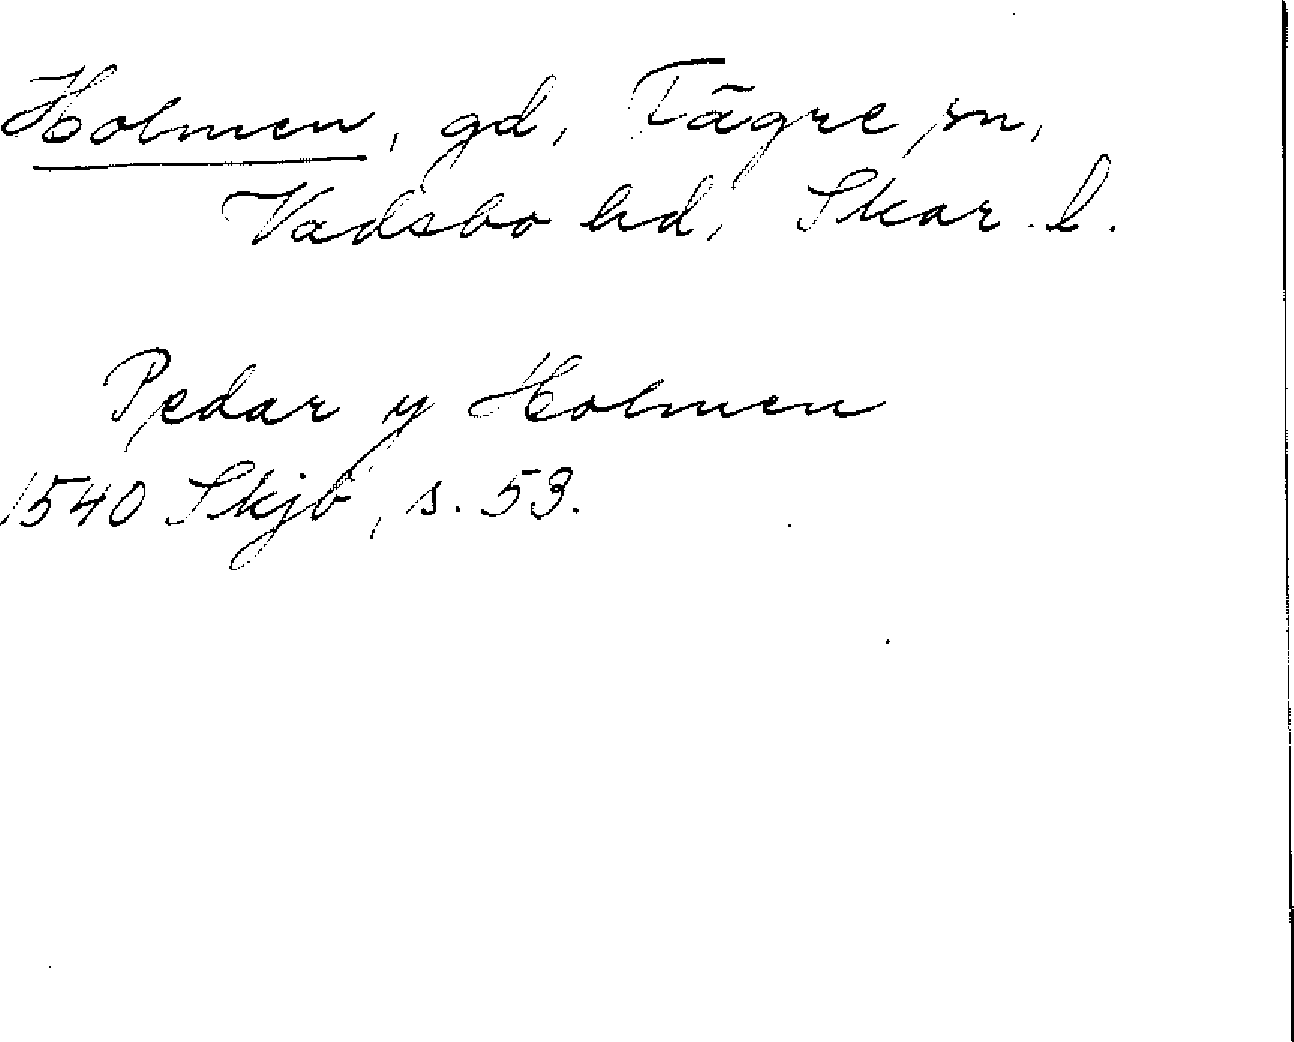 Holmen, gd, Tägre sn,
Vadsbo hd, Skar. l.
Pedar y Holmen
1540 Skjb, s. 53.